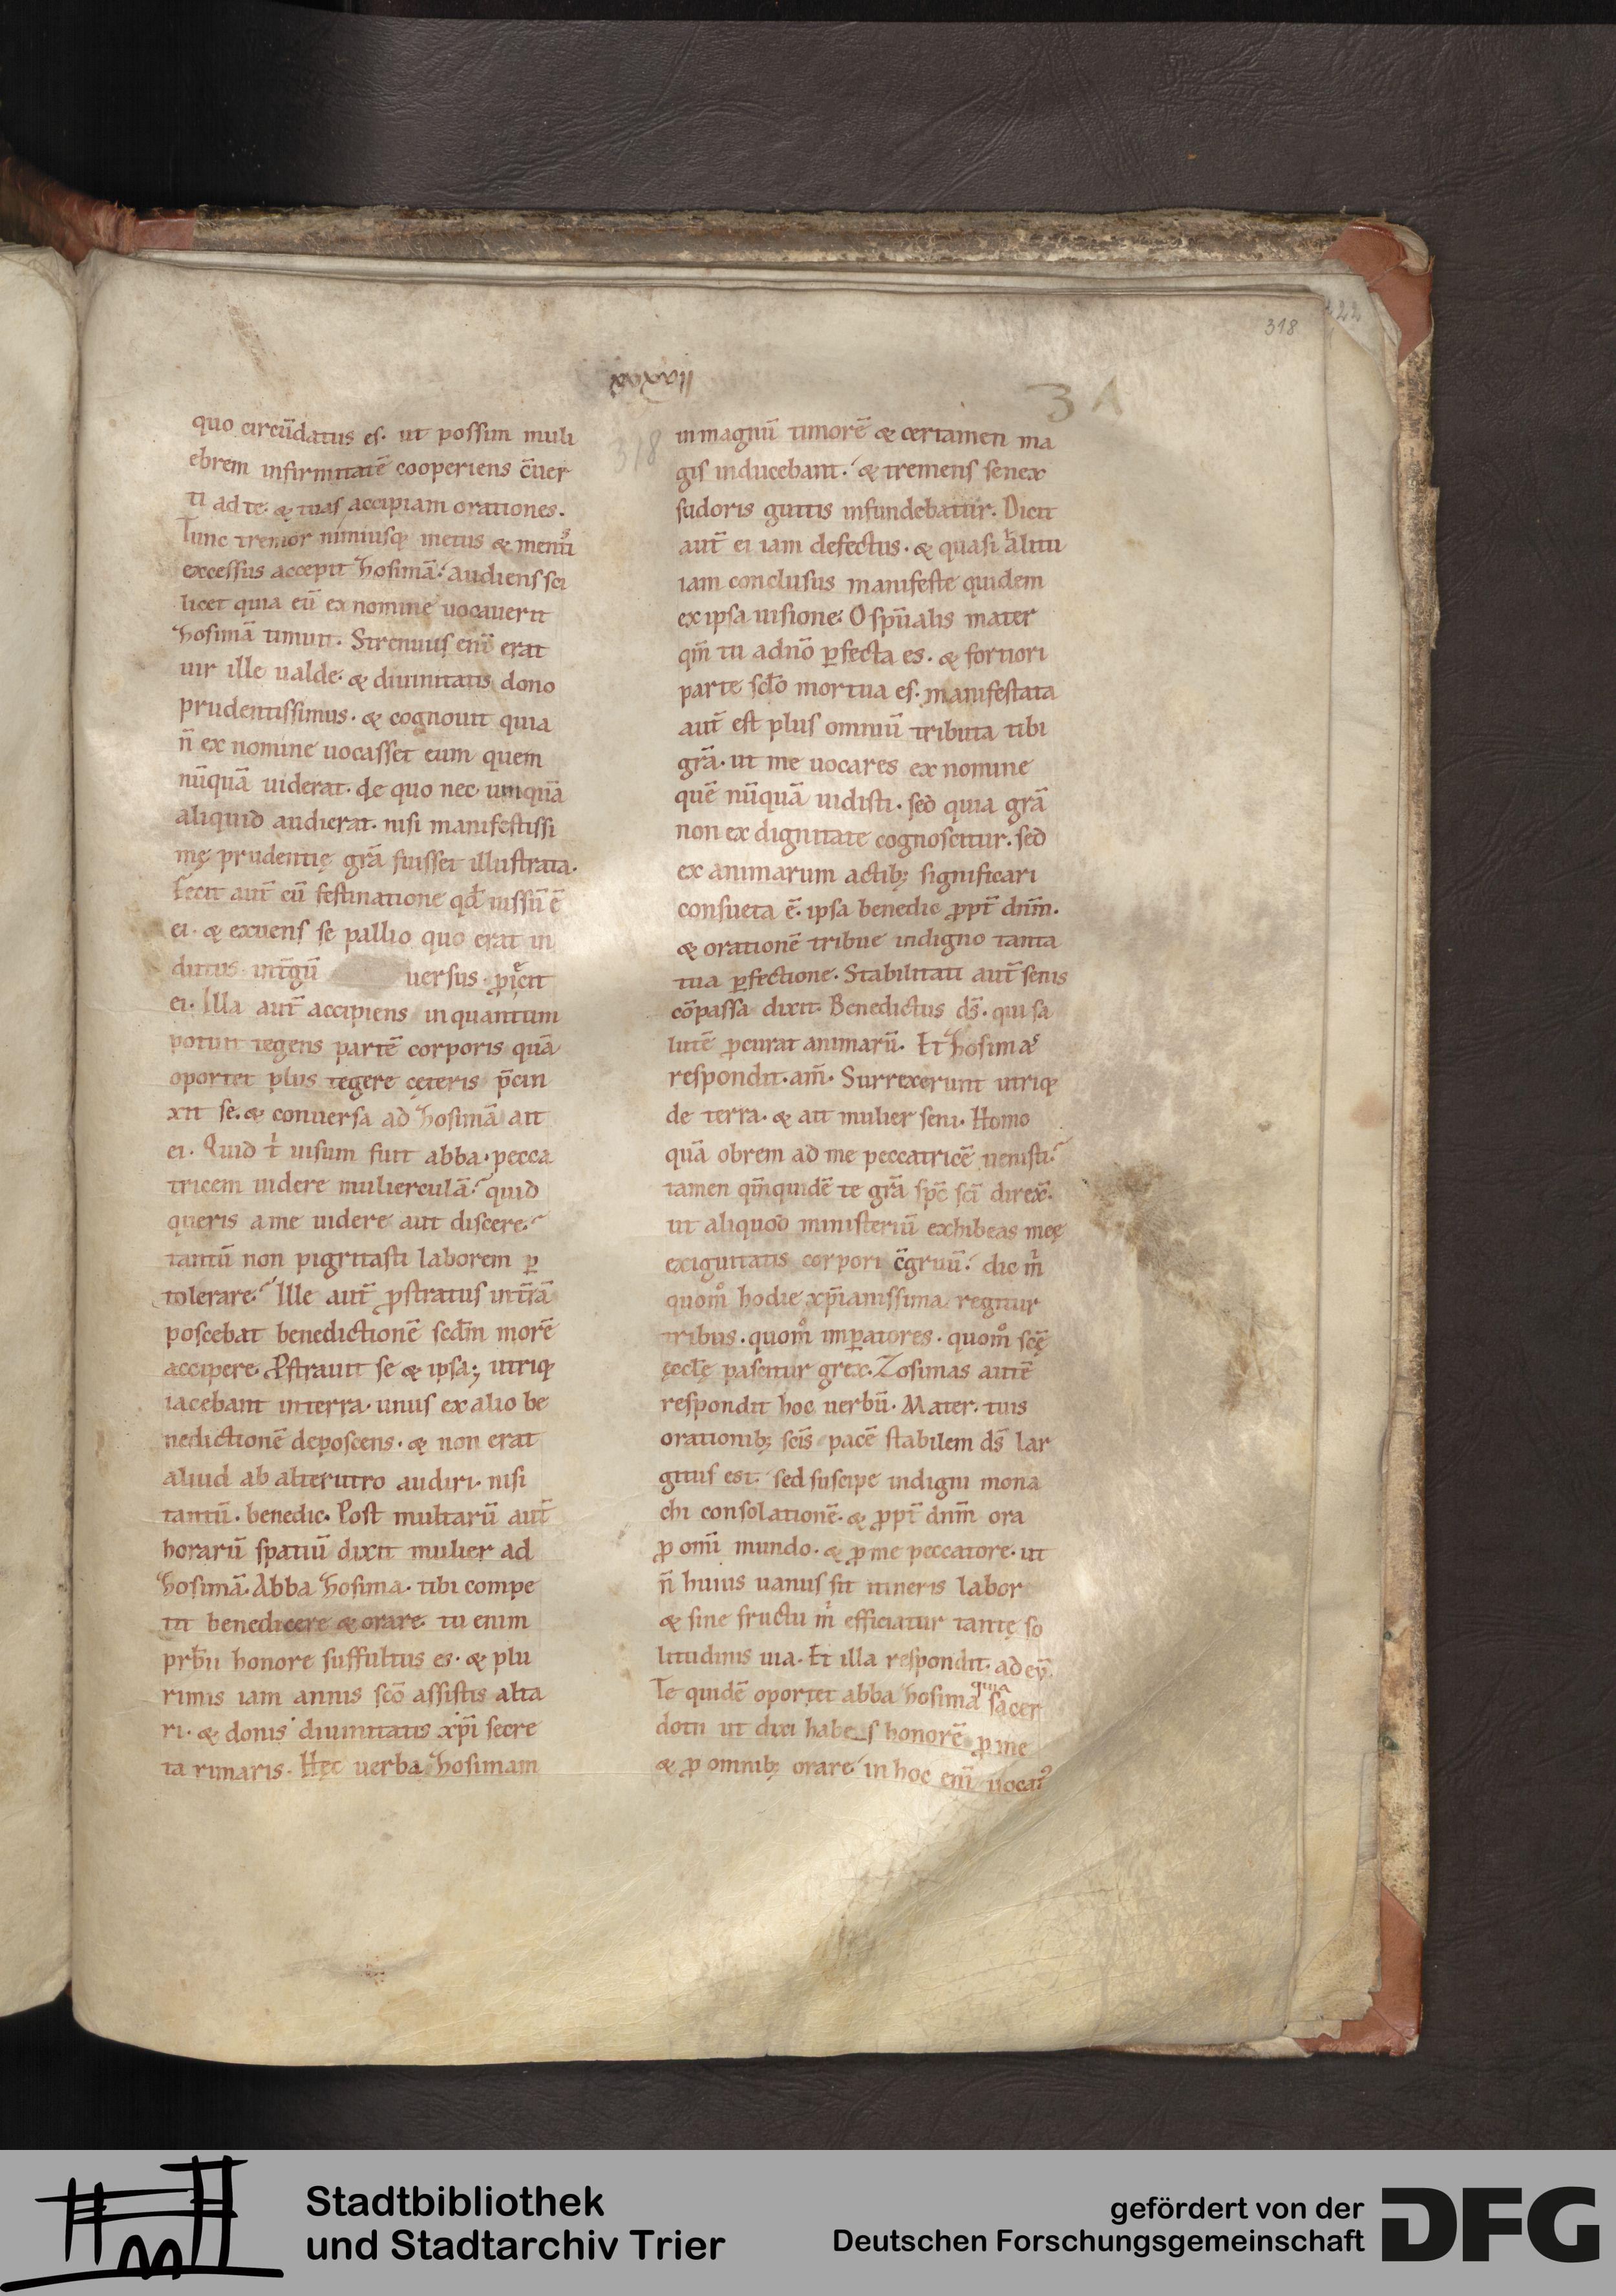 318
22
xxxvii
3 A
318
quo circūdatus es. ut possim muli
ebrem infirmitatē cooperiens c̄uer
ti ad te. & tuas accipiam orationes.
Tunc tremor nimiusq; metus & mentis
excessus accepit hosimā. audiens sci
licet quia eū ex nomine uocauerit
hosimā timuit. Strenuus enī erat
uir ille ualde. & diuinitatis dono
prudentissimus. & cognouit quia
n̄ ex nomine uocasset eum quem
nūquā uiderat. de quo nec umquā
aliquid audierat. nisi manifestissi
mę prudentię grā fuisset illustrata.
Fecit aut̄ cū festinatione qd̄ iussū ē
ei. & exuens se pallio quo erat in
dutus in tergū uersus p̱iecit
ei. Illa aut̄ accipiens inquantum
potuit tegens partē corporis quā
oportet plus tegere cęteris p̄cin
xit se. & conuersa ad hosimā ait
ei. Quid t̄ uisum fuit abba. pecca
tricem uidere mulierculā? quid
queris a me uidere aut discere?
tantū non pigritasti laborem p̱
tolerare? Ille aut̄ p̱stratus in t̄rā
poscebat benedictionē scd̄m morē
accipere. P̱strauit se & ipsa; utriq;
iacebant in terra. unus ex alio be
nedictionē deposcens. & non erat
aliud ab alterutro audiri. nisi
tantū. benedic. Post multarū aut̄
horarū spatiū dixit mulier ad
hosimā. Abba hosima. tibi compe
tit benedicere & orare. tu enim
prb̄ii honore suffultus es. & plu
rimis iam annis scō assistis alta
ri. & donis diuinitatis xp̄i secre
ta rimaris. Hęc uerba hosimam
in magnū timorē & certamen ma
gis inducebant. & tremens senex
sudoris guttis infundebatur. Dicit
aut̄ ei iam defectus. & quasi halitu
iam conclusus manifeste quidem
ex ipsa uisione. O sp̄ualis mater
qm̄ tu ad dn̄o p̱fecta es. & fortiori
parte scl̄o mortua es. manifestata
aut̄ est plus omniū tributa tibi
grā. ut me uocares ex nomine
quē nūquā uidisti. sed quia grā
non ex dignitate cognoscitur. sed
ex animarum actib; significari
consueta ē. ipsa benedic p̱pt̄ dnm̄.
& orationē tribue indigno tanta
tua p̱fectione. Stabilitati aut̄ senis
cōpassa dixit. Benedictus ds̄. qui sa
lutē p̱curat animarū. Et hosimas
respondit. am̄. Surrexerunt utriq;
de terra. & ait mulier seni. Homo
quā obrem ad me peccatricē uenisti?
tamen qm̄quidē te grā sp̄c sc̄i direx̄.
ut aliquod ministeriū exhibeas meę
exiguitatis corpori c̄gruū. dic m̄
quom̊ hodie xp̄ianissima regitur
tribus. quom̊ imp̱atores. quom̊ scę̄
ęccl̄ę pascitur grex. Zosimas autē
respondit hoc uerbū. Mater. tuis
orationib; sc̄is pacē stabilem ds̄ lar
gitus est. sed suscipe indigni mona
chi consolationē. & p̱pt̄ dnm̄ ora
p̱ omī mundo. & p̱ me peccatore. ut
n̄ huius uanus sit itineris labor
& sine fructu m̄ efficiatur tantę so
litudinis uia. Et illa respondit ad eū.
Te quidē oportet abba hosima quia sacer
dotii ut dixi habes honorē p̱ me
& p̱ omnib; orare. in hoc enī uocat᷒
Stadtbibliothek
und Stadtarchiv Trier
gefördert von der
Deutschen Forschungsgemeinschaft
DFG